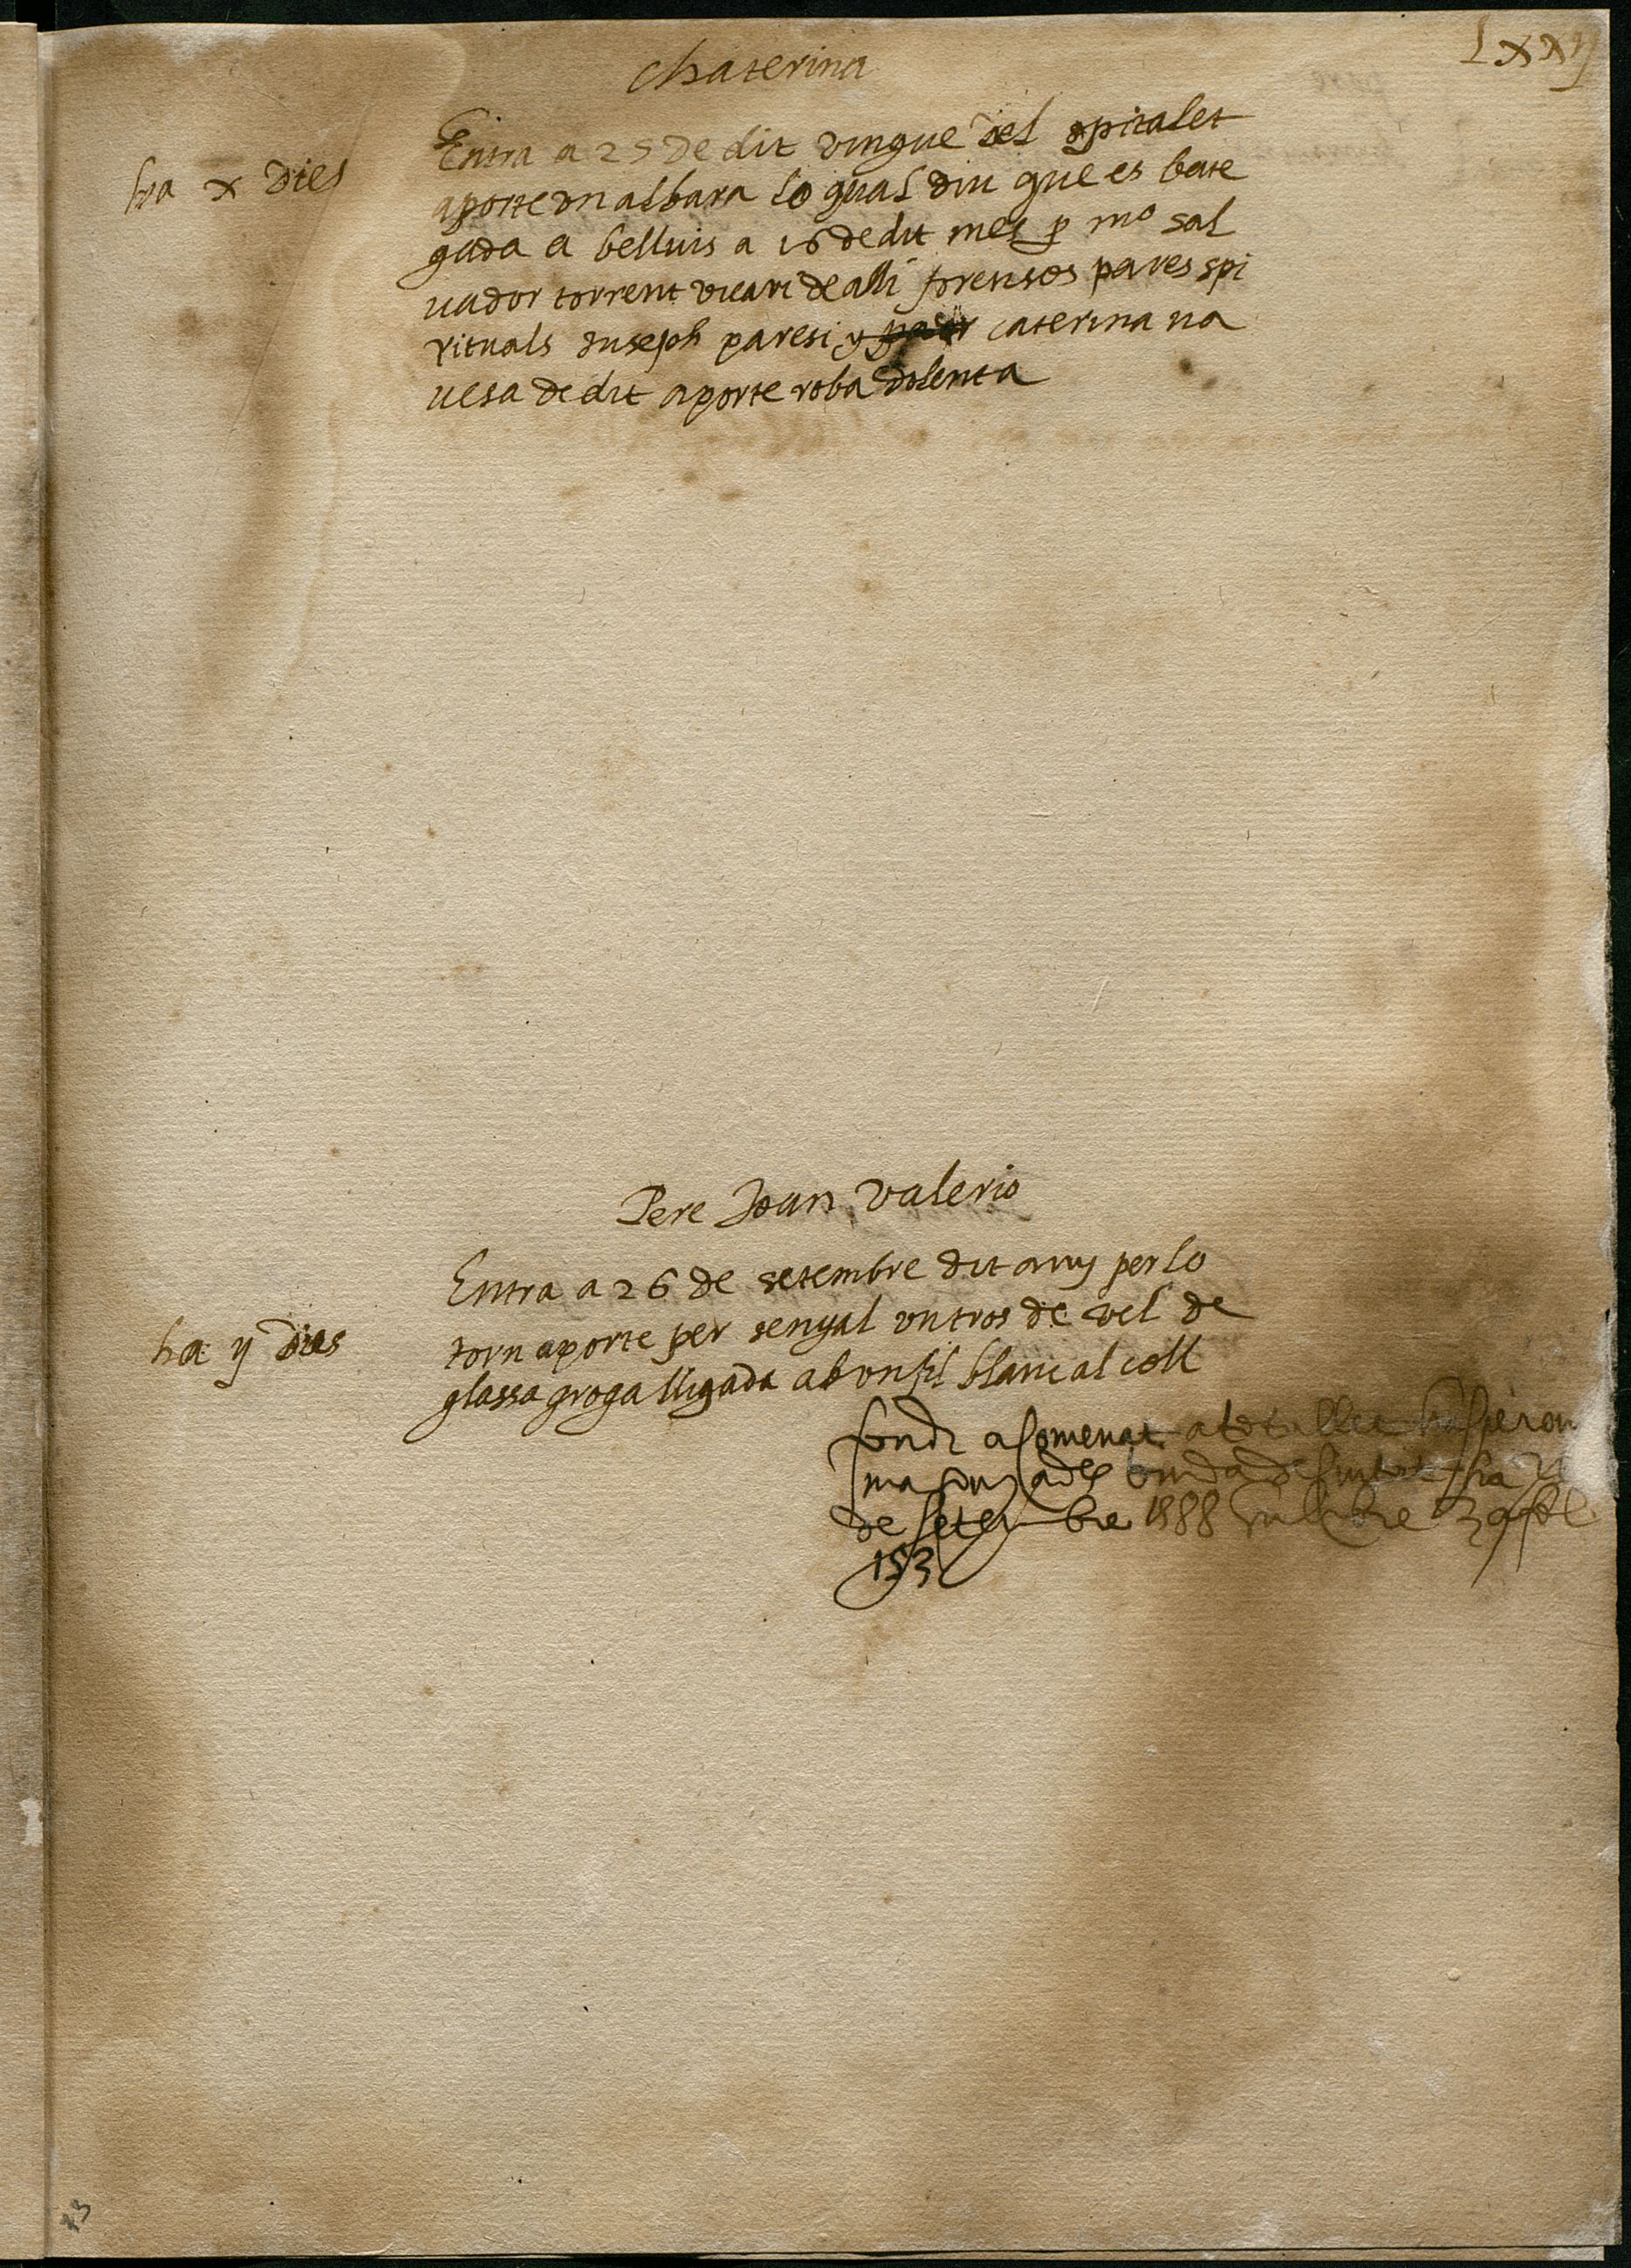 Lxxij
Chaterina
ha x dies
Entra a 25 de dit vingue del spitalet
aporte vn albara lo qual diu que es bate
gada a belluis a 16 de dit mes p mo sal
uador torrent vicari de alli forensos pares spi
rituals Juseph paresi y caterina na
uesa de dit aporte roba dolenta
Pere Joan Valerio
ha ij dies
Entra a 26 de setembre dit any per lo
torn aporte per senyal vn tros de vel de
glassa groga lligada ab vn fil blanc al coll
fonch acomenat a
de setembre 1588
153
73